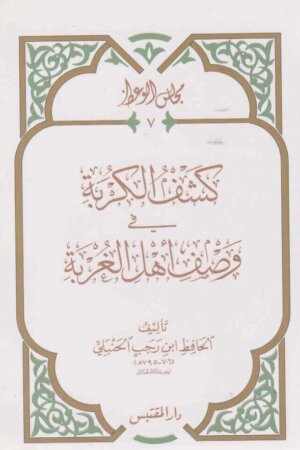 مجالس الوعظ
٧
كشف الكربة
في
وصف أهل الغربة
تأليف
الحافظ ابن رجب الحنبلي
دار المقتبس